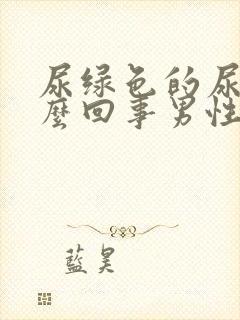 尿绿色的尿
麼回事男性
藍昊